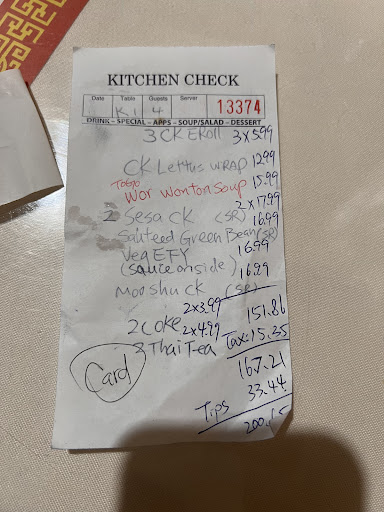 KITCHEN CHECK
Date Table Guests Server
K1 4 13374
DRINK – SPECIAL – APPS – SOUP/SALAD – DESSERT
3 CK EROLL 3x5.99
CK Lettus WRAP 12.99
TOGO
Wor Wonton Soup 15.99
2 Sesa CK (SR) 2x17.99
Sauteed Green Bean (SR) 16.99
Veg EFY 16.99
(sauce on side)
Moo shu CK (SR) 16.99
2 Coke 2x3.99 151.86
2 Thai Tea 2x4.99 Tax: 15.35
Card 167.21
Tips 33.44